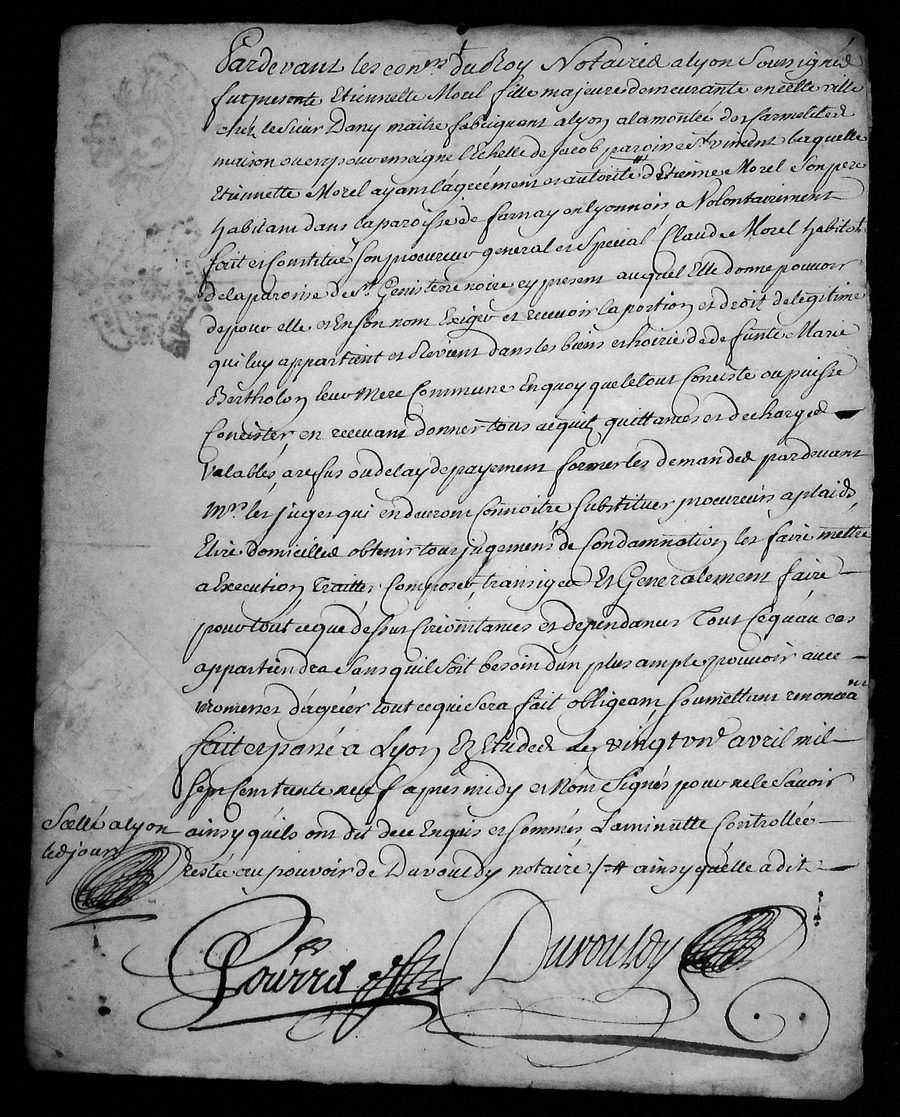 Pardevant les con.rs du Roy Notaires a lyon Soussignés
fut presente Etiennette Morel fille majeure demeurante en cette ville
chéz le Sieur Dany maître fabriquant a lyon a la montée des Carmelites
maison ou est pour enseigne l'Echelle de Jacob paroisse St vincent laquelle
Etiennette Morel ayant l'agréement et autorité # d'Etienne Morel Son pere
habitant dans la paroisse de farnay en lyonnois a Volontairement
fait et Constitué Son procureur general et Special Claude Morel habitt
de la paroisse de St Genis terre noire cy present auquel Elle donne pouvoir
de pour elle et En son nom Exiger et recevoir la portion et droit de legitime
qui luy appartient et Revient dans les biens et hoirie de defunte Marie
Bertholon leur Mere Commune En quoy que le tout Consiste ou puisse
Consister, en recevant donner tous acquits quittances et decharges
Valables, a refus ou delay de payement former les demandes pardevant
Mrs les juges qui en devront Connoitre Substituer procureurs a plaids
Elire domicilles obtenir tous jugements de Condamnation les faire mettre
a Execution Traitter Composer, transiger Et Generalement faire
pour tout ce que dessus Circonstances et dependances Tout ce qu'au cas
appartiendra Sans qu'il Soit besoin d'un plus ample pouvoir avec
promesses d'agréer tout ce qui Sera fait obligeant Soumettant renonceant
fait et passé a Lyon Ez Etudes le vingt un avril mil
Sept Cent trente neuf apres midy et N'ont Signés pour ne le Savoir
ainsy qu'ils ont dit de ce Enquis et Sommés La minutte Controllée
restée au pouvoir de Duvouldy notaire /# ainsy qu'elle a dit
Scellé a lyon
led jour
Pourra
Duvouldy